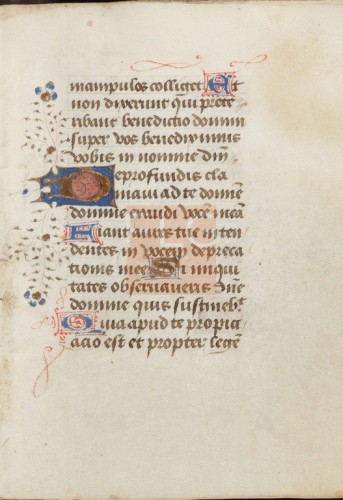 manipulos colliget Et
non dixerunt qui prete
ribant benedictio domini
super vos benediximus
vobis in nomine dni
De profundis cla
mavi ad te domine
domine exaudi voce mea
Fiant aures tue in ten
dentes in vocem depreca
tionis mee Si iniqui
tates observaveris dne
domine quis sustineb't
Quia apud te propici
acio est et propter lege